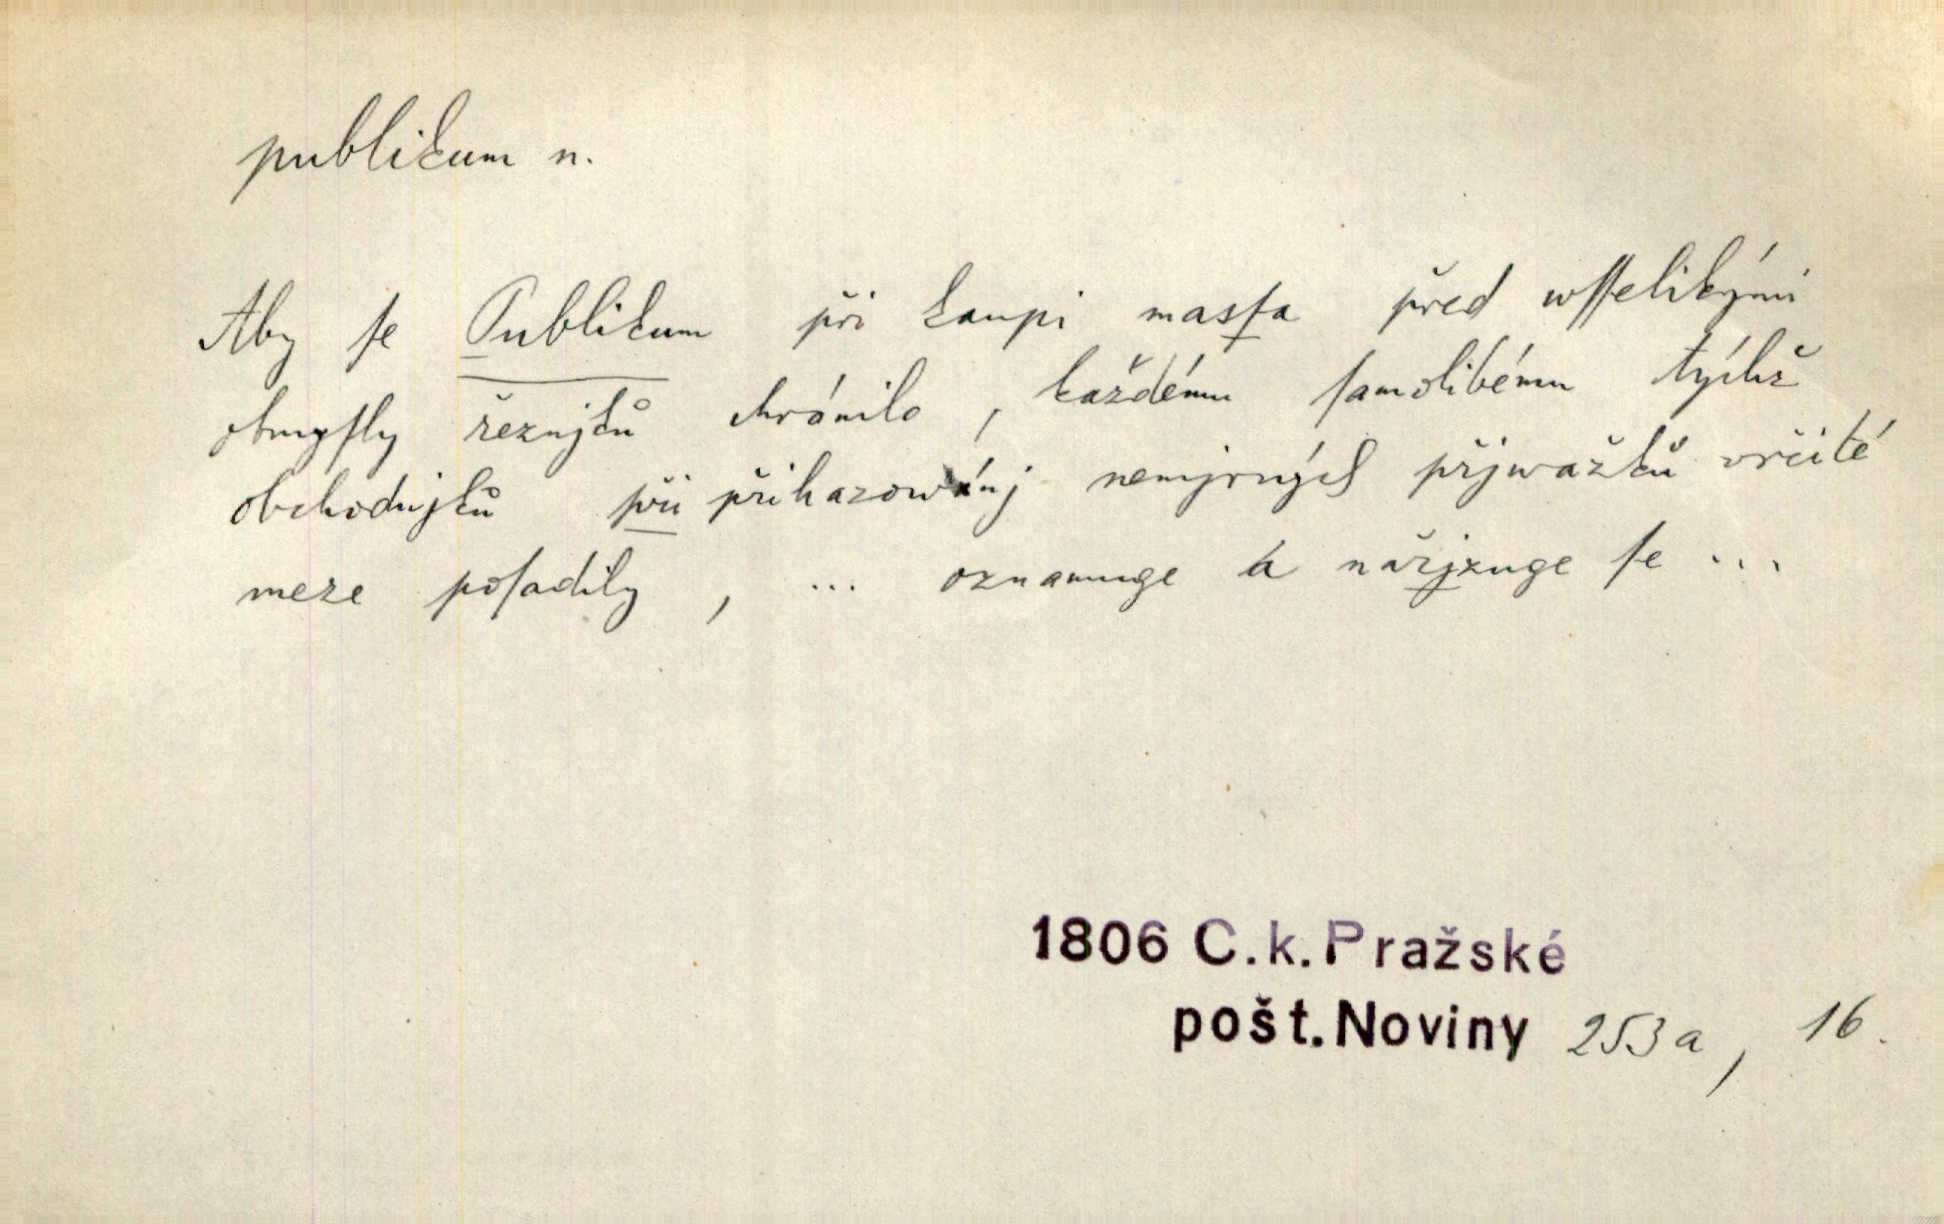 publikum n.
Aby ſe Publikum při kaupi masſa před wſſelikými
obmyſly řeznjků chránilo, každému ſamolibému týchž
obchodnjků při přihazowánj nemjrných přjwažků vrčité
meze poſadily, ... oznamuge a nařjzuge ſe ...
1806 C.k.Pražské
pošt.Noviny 253a, 16.